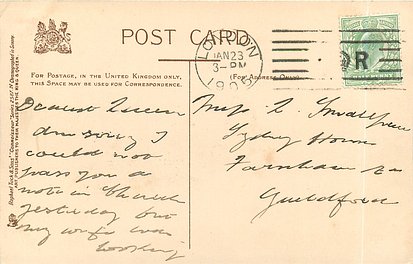 POST CARD
LONDON
JAN 23
3 - PM
R
FOR POSTAGE, IN THE UNITED KINGDOM ONLY,
THIS SPACE MAY BE USED FOR CORRESPONDENCE.
(FOR ADDRESS ONLY)
Dearest Queen
Am sorry I
could not
pass you a
note in Church
yesterday but
my wife was
looking
Miss L.
Sydney House
Farnham
Guildford
Raphael Tuck & Sons' "Connoisseur" Series
ART PUBLISHERS TO THEIR MAJESTIES THE KING & QUEEN